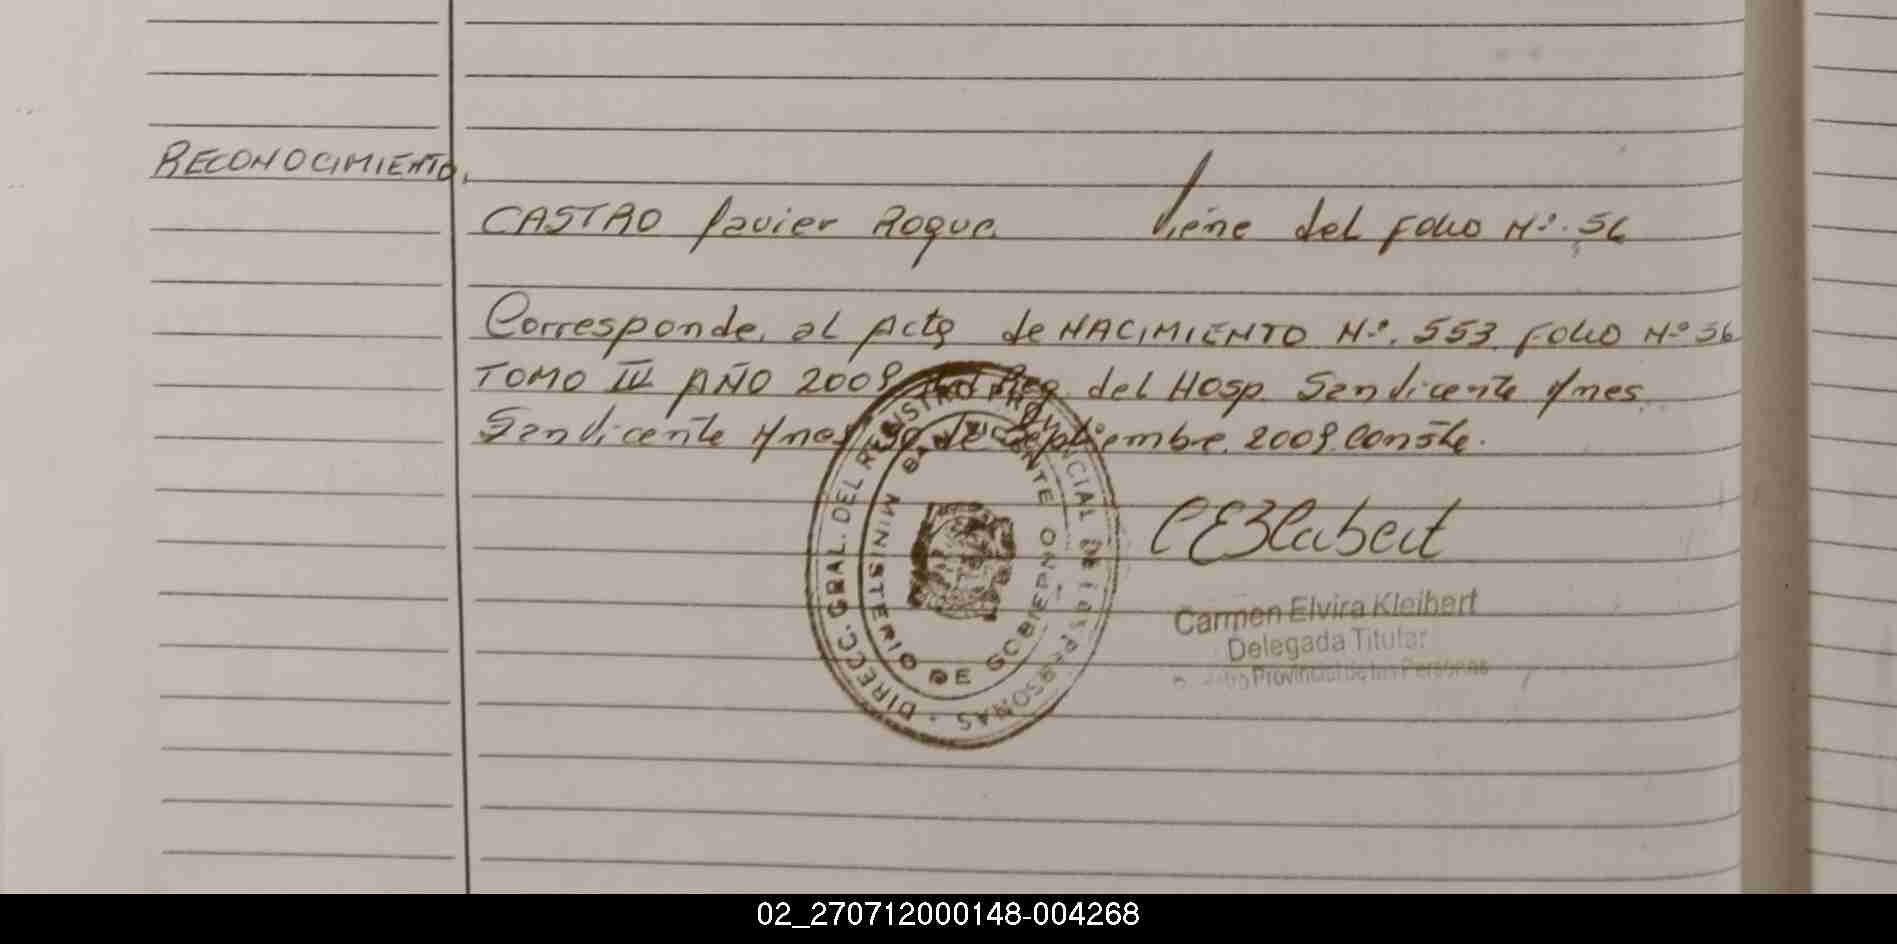 RECONOCIMIENTO.
CASTRO Javier Roque. Viene del FOLIO Nº. 56
Corresponde. al Acta de NACIMIENTO Nº. 553. FOLIO Nº 56
TOMO III AÑO 2009 del Reg. del Hosp. San Vicente Ynes.
San Vicente Ynes, 30 de Septiembre. 2009. Conste.
DIRECC. GRAL. DEL REGISTRO PROVINCIAL DE LAS PERSONAS
MINISTERIO DE GOBIERNO
SAN VICENTE
Carmen Elvira Kleibert
Delegada Titular
Provincial de las Personas
02_270712000148-004268